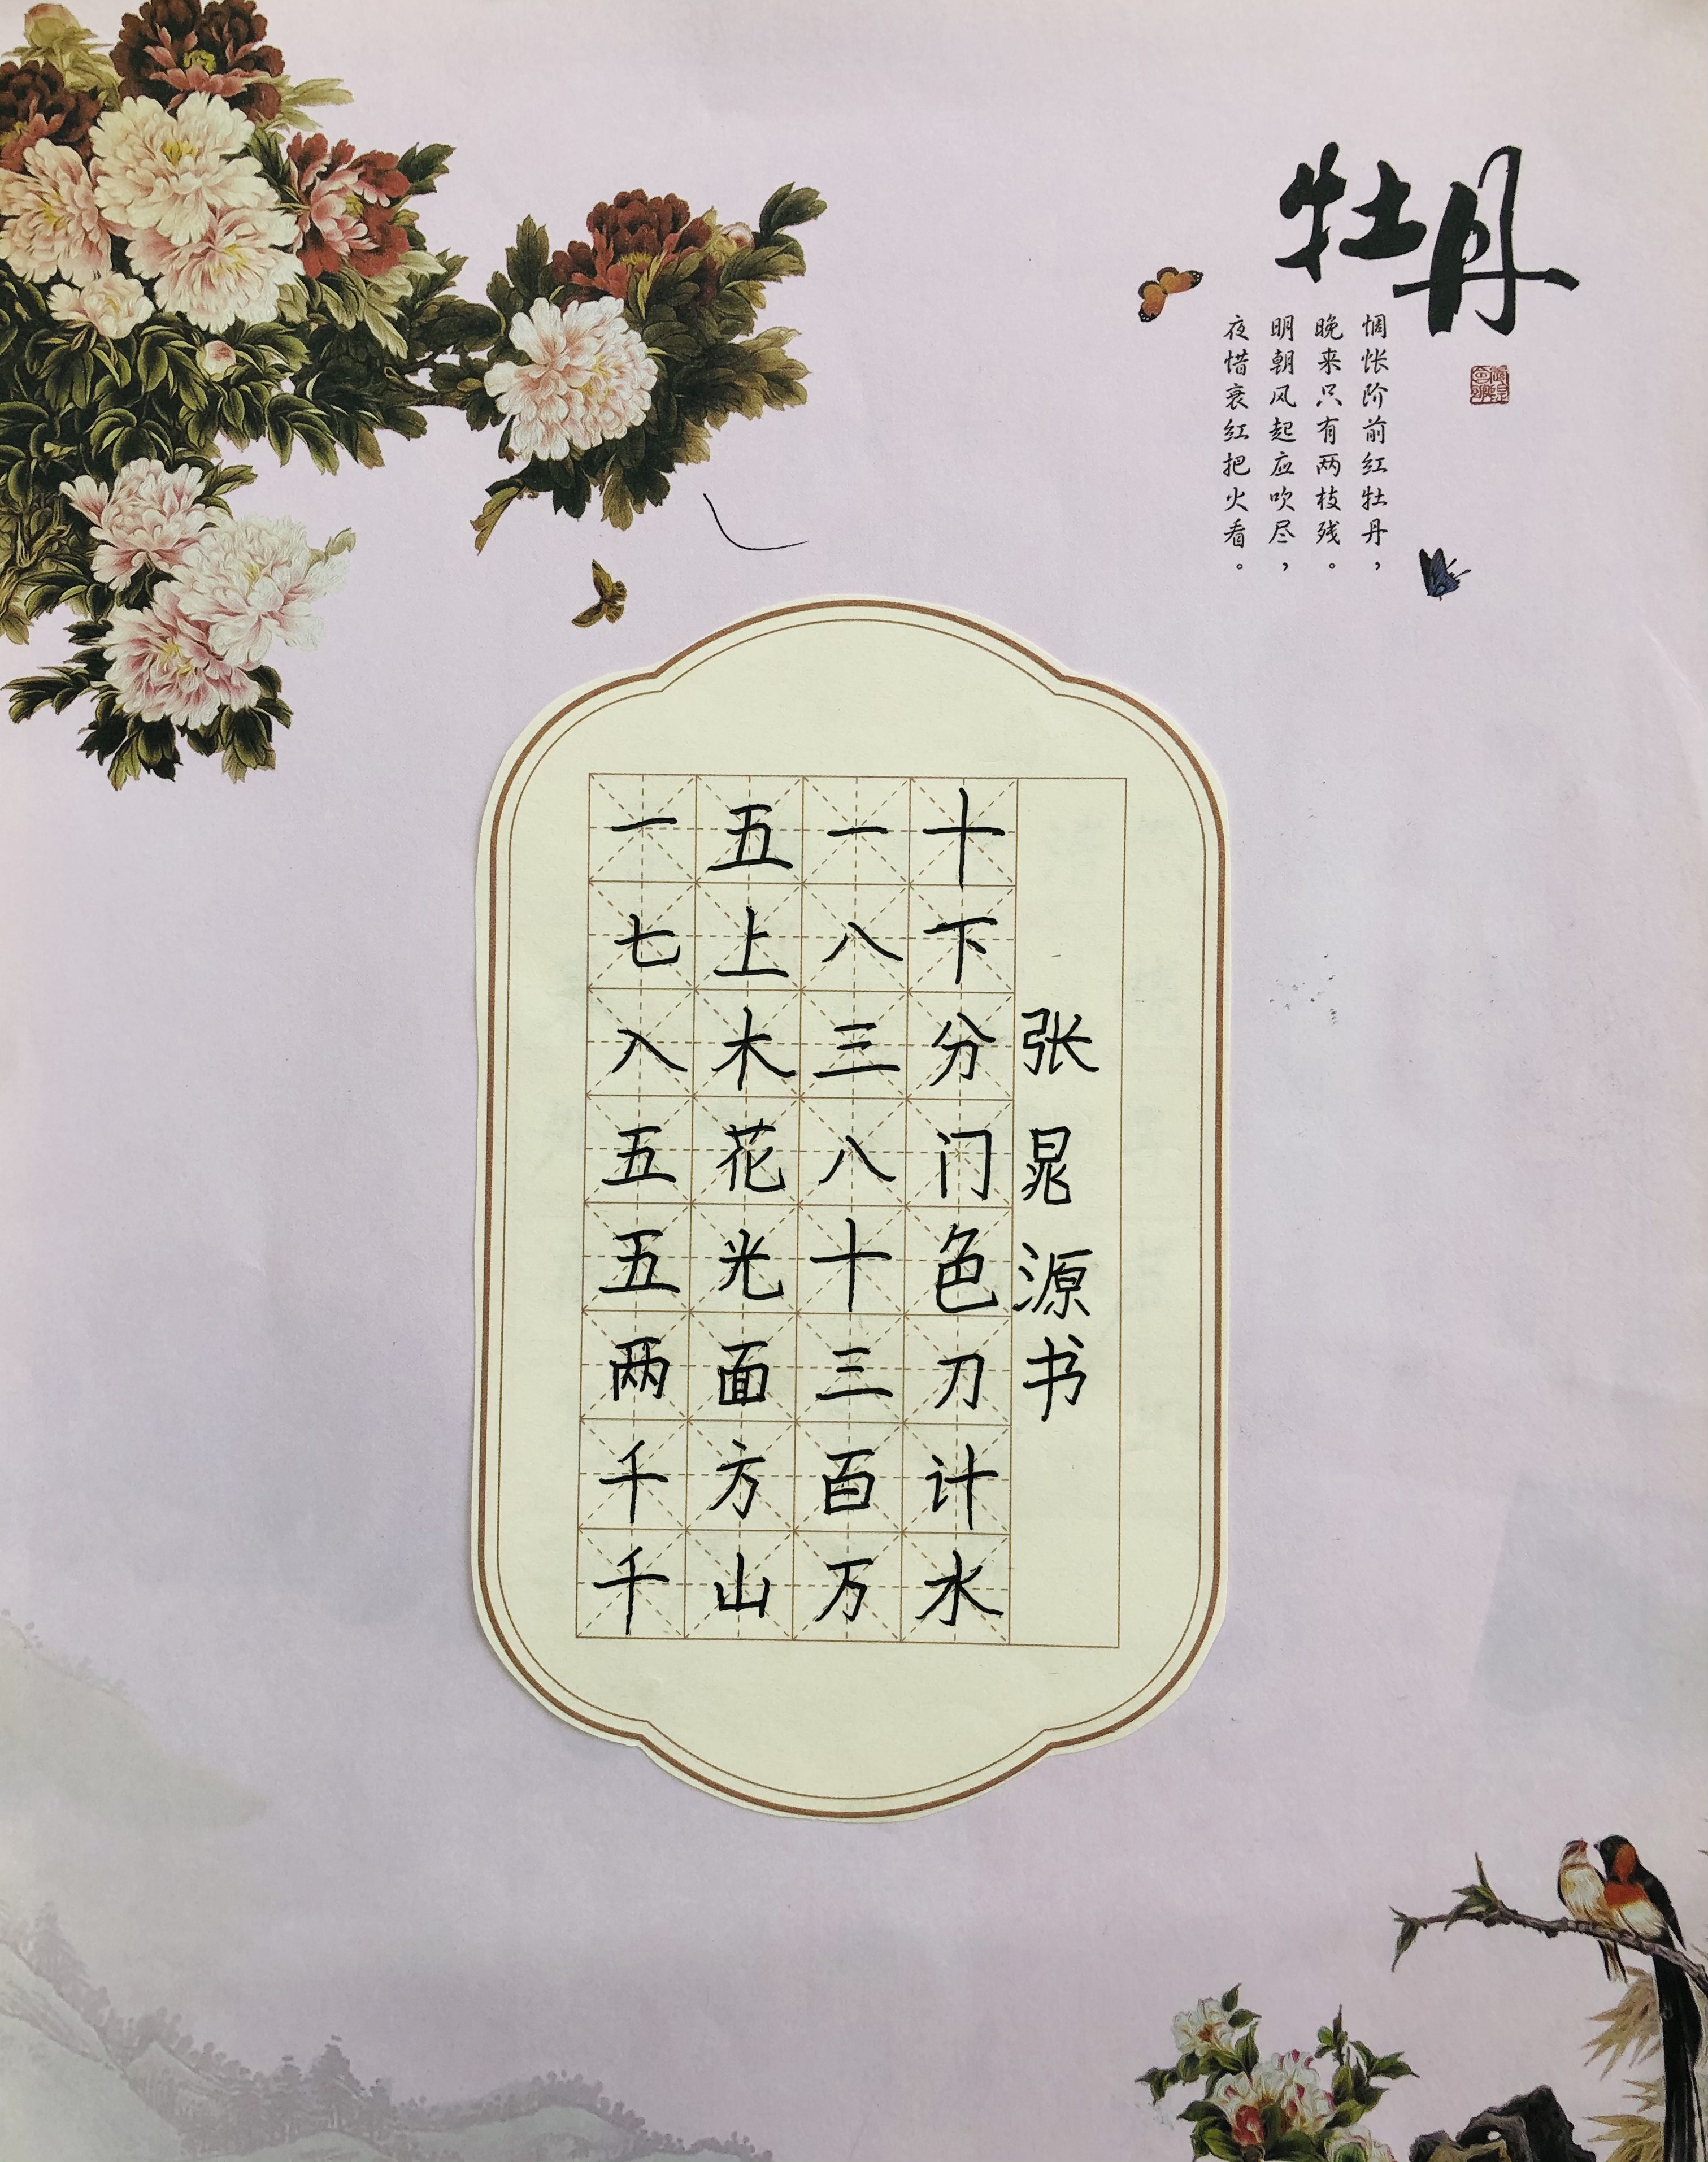 牡丹
惆怅阶前红牡丹，
晚来只有两枝残。
明朝风起应吹尽，
夜惜衰红把火看。
一五一十
七上八下
入木三分
五花八门
五光十色
两面三刀
千方百计
千山万水
张晁源书